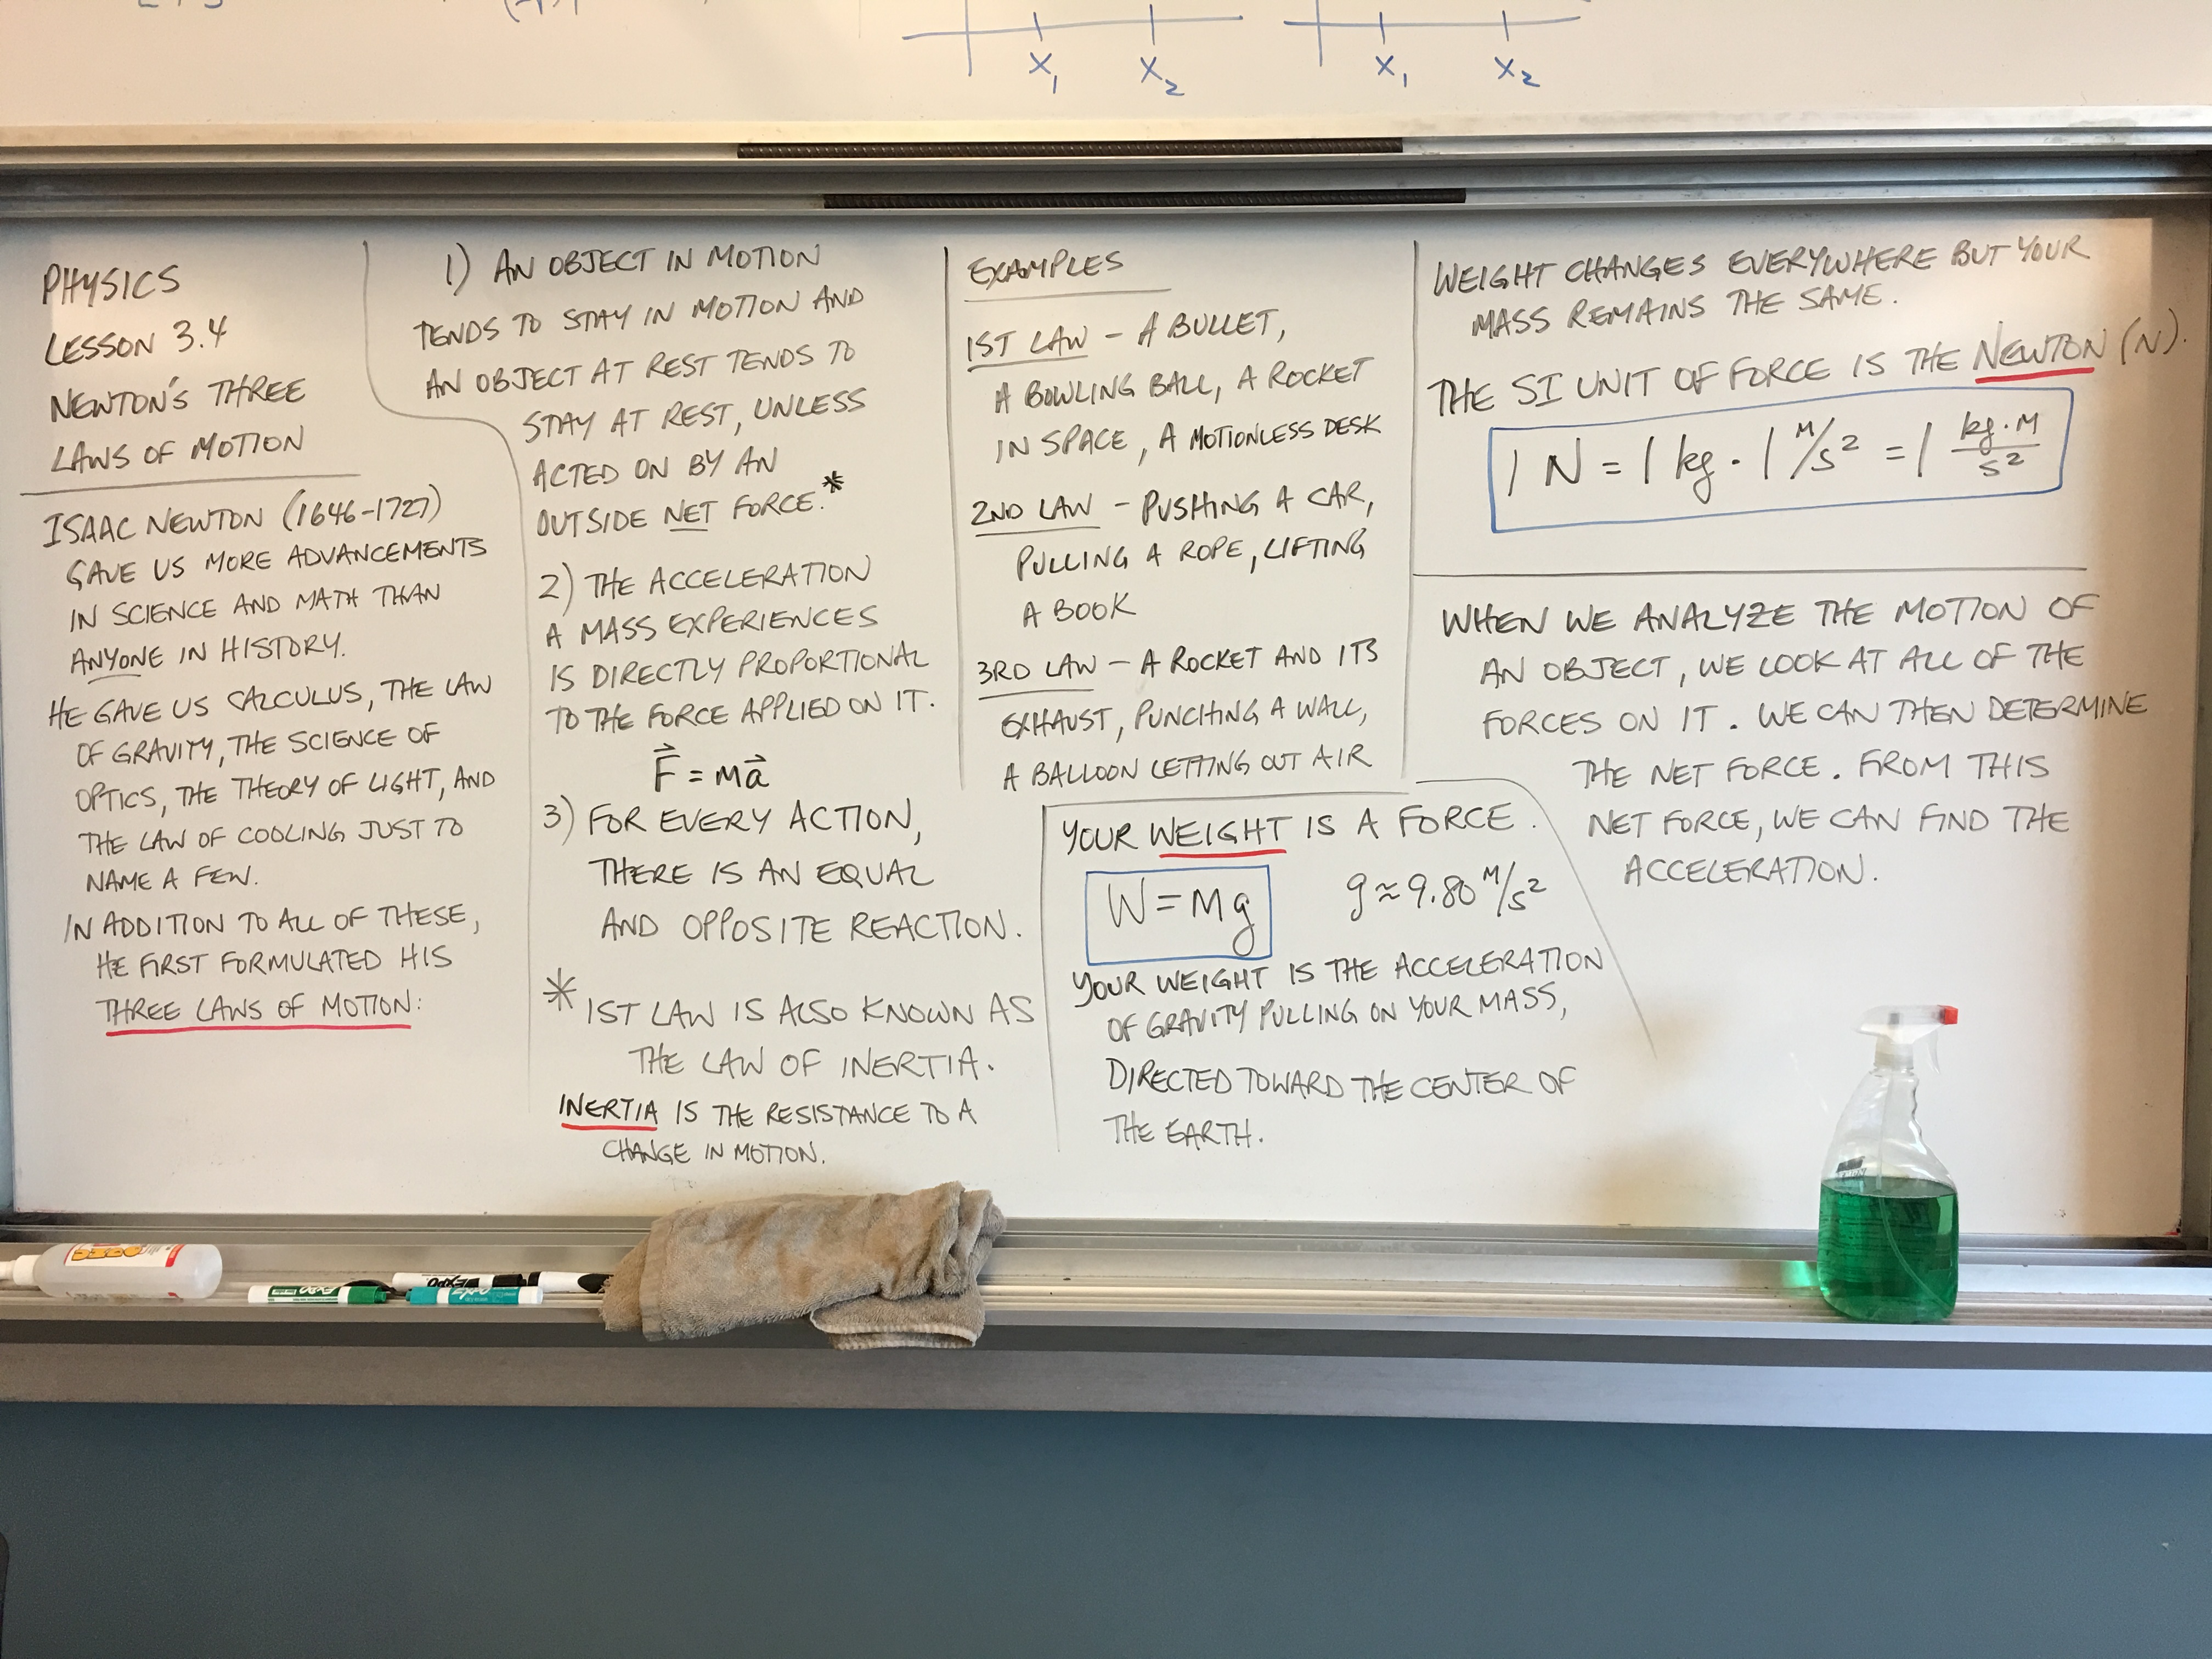 X₁ X₂ X₁ X₂
PHYSICS
LESSON 3.4
NEWTON'S THREE
LAWS OF MOTION
ISAAC NEWTON (1646-1727)
GAVE US MORE ADVANCEMENTS
IN SCIENCE AND MATH THAN
ANYONE IN HISTORY.
HE GAVE US CALCULUS, THE LAW
OF GRAVITY, THE SCIENCE OF
OPTICS, THE THEORY OF LIGHT, AND
THE LAW OF COOLING JUST TO
NAME A FEW.
IN ADDITION TO ALL OF THESE,
HE FIRST FORMULATED HIS
THREE LAWS OF MOTION:
1) AN OBJECT IN MOTION
TENDS TO STAY IN MOTION AND
AN OBJECT AT REST TENDS TO
STAY AT REST, UNLESS
ACTED ON BY AN
OUTSIDE NET FORCE.*
2) THE ACCELERATION
A MASS EXPERIENCES
IS DIRECTLY PROPORTIONAL
TO THE FORCE APPLIED ON IT.
F⃗ = ma⃗
3) FOR EVERY ACTION,
THERE IS AN EQUAL
AND OPPOSITE REACTION.
* 1ST LAW IS ALSO KNOWN AS
THE LAW OF INERTIA.
INERTIA IS THE RESISTANCE TO A
CHANGE IN MOTION.
EXAMPLES
1ST LAW – A BULLET,
A BOWLING BALL, A ROCKET
IN SPACE, A MOTIONLESS DESK
2ND LAW – PUSHING A CAR,
PULLING A ROPE, LIFTING
A BOOK
3RD LAW – A ROCKET AND ITS
EXHAUST, PUNCHING A WALL,
A BALLOON LETTING OUT AIR
YOUR WEIGHT IS A FORCE.
W = mg g ≈ 9.80 m/s²
YOUR WEIGHT IS THE ACCELERATION
OF GRAVITY PULLING ON YOUR MASS,
DIRECTED TOWARD THE CENTER OF
THE EARTH.
WEIGHT CHANGES EVERYWHERE BUT YOUR
MASS REMAINS THE SAME.
THE SI UNIT OF FORCE IS THE NEWTON (N).
1 N = 1 kg · 1 m/s² = 1 kg·m/s²
WHEN WE ANALYZE THE MOTION OF
AN OBJECT, WE LOOK AT ALL OF THE
FORCES ON IT. WE CAN THEN DETERMINE
THE NET FORCE. FROM THIS
NET FORCE, WE CAN FIND THE
ACCELERATION.
EXPO
EXPO
EXPO